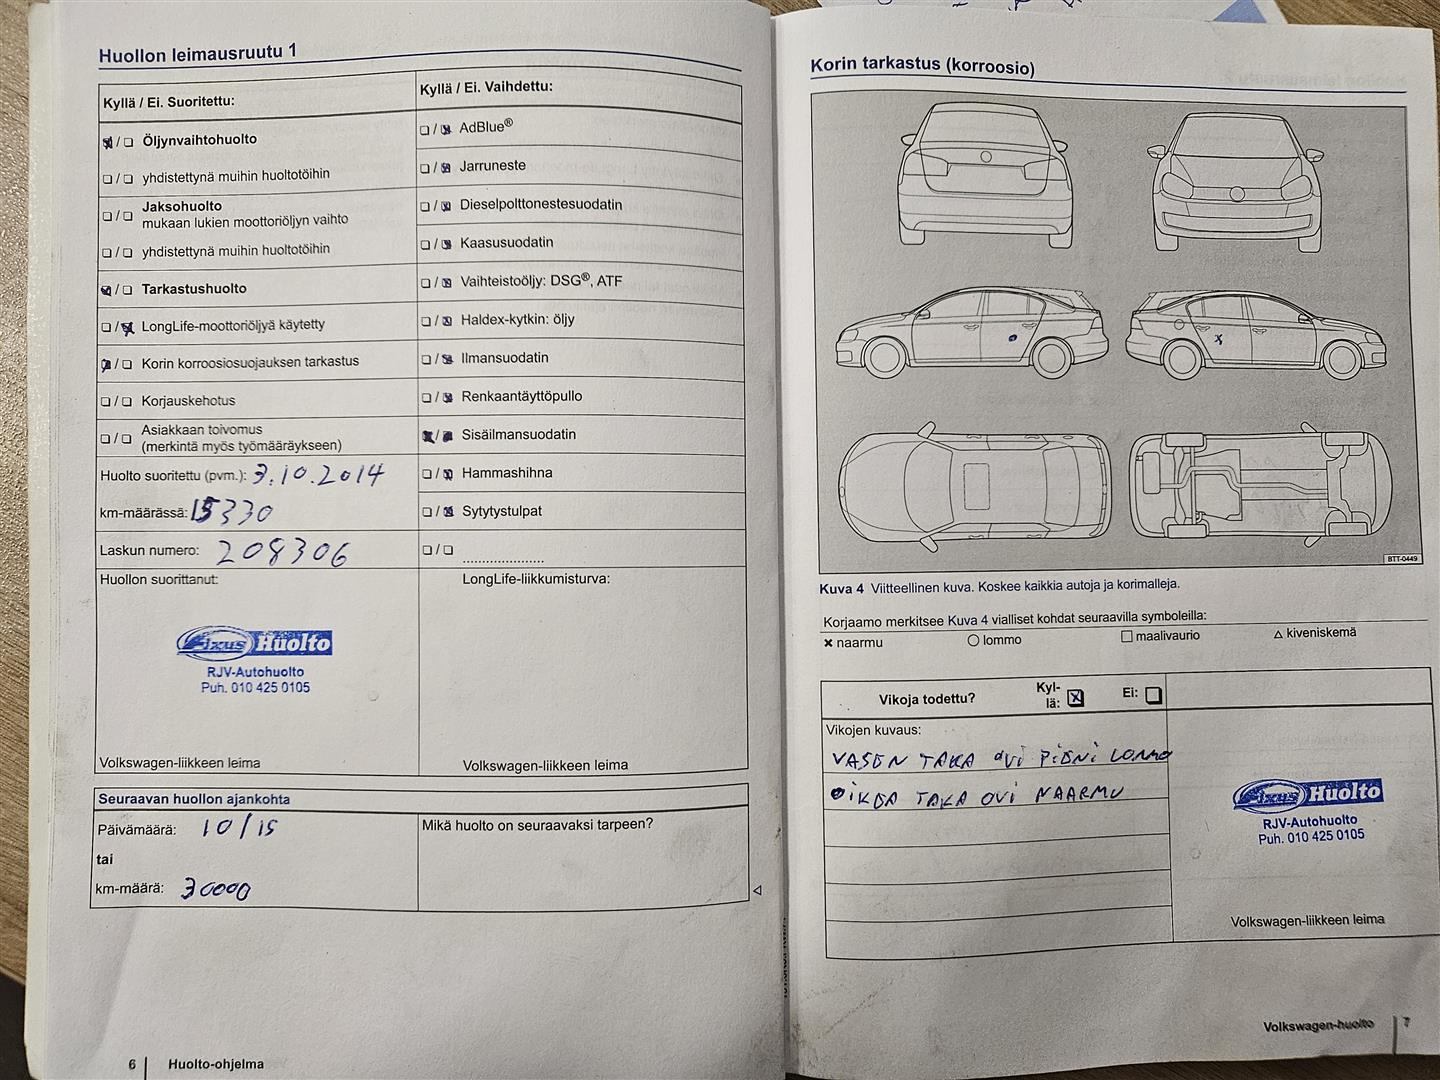 Huollon leimausruutu 1
Kyllä / Ei. Suoritettu:
Kyllä / Ei. Vaihdettu:
Öljynvaihtohuolto
AdBlue®
yhdistettynä muihin huoltotöihin
Jarruneste
Jaksohuolto
mukaan lukien moottoriöljyn vaihto
Dieselpolttonestesuodatin
yhdistettynä muihin huoltotöihin
Kaasusuodatin
Tarkastushuolto
Vaihteistoöljy: DSG®, ATF
LongLife-moottoriöljyä käytetty
Haldex-kytkin: öljy
Korin korroosiosuojauksen tarkastus
Ilmansuodatin
Korjauskehotus
Renkaantäyttöpullo
Asiakkaan toivomus
(merkintä myös työmääräykseen)
Sisäilmansuodatin
Huolto suoritettu (pvm.): 3.10.2014
Hammashihna
km-määrässä: 15330
Sytytystulpat
Laskun numero: 208306
Huollon suorittanut:
LongLife-liikkumisturva:
Fixus Huolto
RJV-Autohuolto
Puh. 010 425 0105
Volkswagen-liikkeen leima
Volkswagen-liikkeen leima
Seuraavan huollon ajankohta
Päivämäärä: 10/15
Mikä huolto on seuraavaksi tarpeen?
tai
km-määrä: 30000
6 Huolto-ohjelma
Korin tarkastus (korroosio)
BTT-0449
Kuva 4 Viitteellinen kuva. Koskee kaikkia autoja ja korimalleja.
Korjaamo merkitsee Kuva 4 vialliset kohdat seuraavilla symboleilla:
naarmu
lommo
maalivaurio
kiveniskemä
Vikoja todettu?
Kyl-
lä:
Ei:
Vikojen kuvaus:
VASEN TAKA OVI PIENI LOMMO
OIKEA TAKA OVI NAARMU
Fixus Huolto
RJV-Autohuolto
Puh. 010 425 0105
Volkswagen-liikkeen leima
Volkswagen-huolto 7